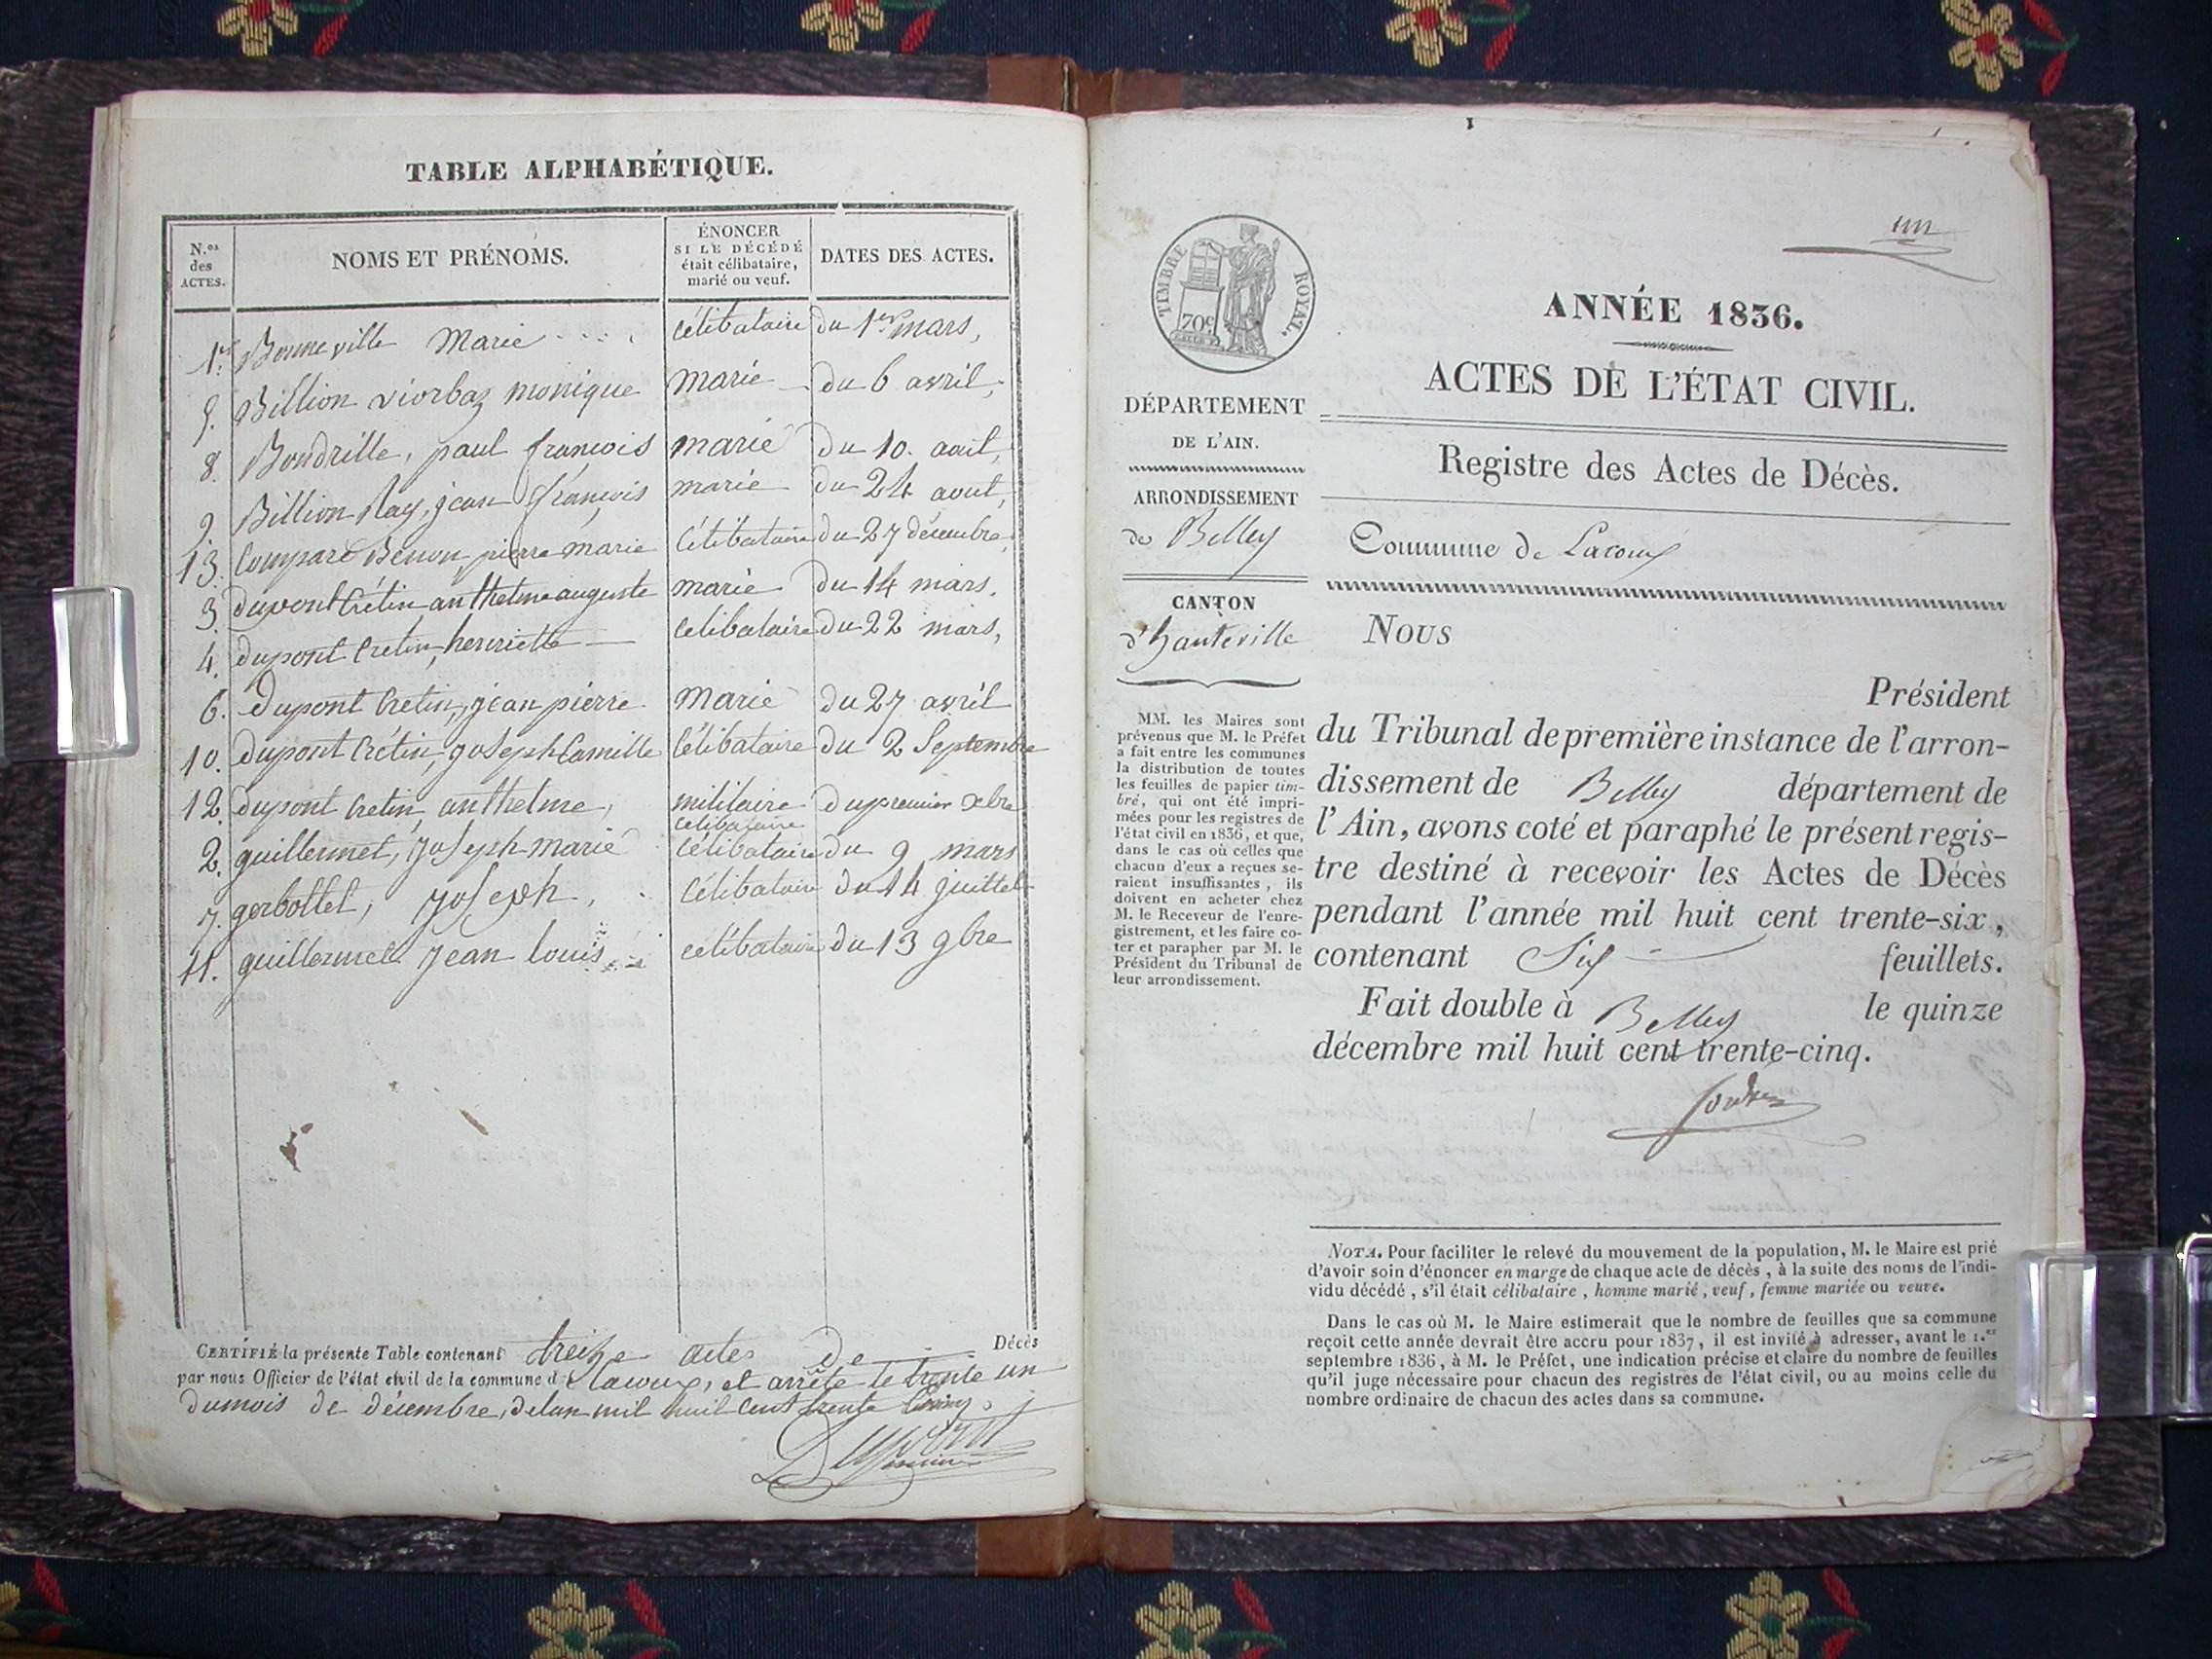 TABLE ALPHABÉTIQUE.
N.os des ACTES.
NOMS ET PRÉNOMS.
ÉNONCER SI LE DÉCÉDÉ était célibataire, marié ou veuf.
DATES DES ACTES.
1er Bonneville Marie célibataire du 1er mars,
5. Billion viorbaz monique marié du 6 avril,
8. Bondrille, paul françois marié du 10. aout,
9. Billion Ray, jean françois marié du 24 aout,
13. Compare Benon, pierre marie célibataire du 27 décembre,
3. dupont Crétin anthelme auguste marié du 14 mars.
4. dupont Cretin, henriette célibataire du 22 mars,
6. dupont Cretin, jean pierre marié du 27 avril
10. dupont Crétin, joseph Camille célibataire du 2 Septembre
12. dupont Cretin, anthelme, militaire celibataire du premier xbre
2. guillermet, joseph marie célibataire du 9 mars
7. gerbottet, joseph, célibataire du 14 juillet
11. guillermet Jean louis célibataire du 13 9bre
CERTIFIÉ la présente Table contenant treize actes de Décès
par nous Officier de l'état civil de la commune de Lacoux, et arrêté le trente un
du mois de décembre, de l'an mil huit cent trente Cinq.
Dupont
TIMBRE ROYAL.
70c
un
ANNÉE 1836.
ACTES DE L'ÉTAT CIVIL.
Registre des Actes de Décès.
Commune de Lacoux
DÉPARTEMENT
DE L'AIN.
ARRONDISSEMENT
de Belley
CANTON
d'hauteville
MM. les Maires sont
prévenus que M. le Préfet
a fait entre les communes
la distribution de toutes
les feuilles de papier tim-
bré, qui ont été impri-
mées pour les registres de
l'état civil en 1836, et que,
dans le cas où celles que
chacun d'eux a reçues se-
raient insuffisantes, ils
doivent en acheter chez
M. le Receveur de l'enre-
gistrement, et les faire co-
ter et parapher par M. le
Président du Tribunal de
leur arrondissement.
Nous
Président
du Tribunal de première instance de l'arron-
dissement de Belley département de
l'Ain, avons coté et paraphé le présent regis-
tre destiné à recevoir les Actes de Décès
pendant l'année mil huit cent trente-six,
contenant Six feuillets.
Fait double à Belley le quinze
décembre mil huit cent trente-cinq.
NOTA. Pour faciliter le relevé du mouvement de la population, M. le Maire est prié
d'avoir soin d'énoncer en marge de chaque acte de décès, à la suite des noms de l'indi-
vidu décédé, s'il était célibataire, homme marié, veuf, femme mariée ou veuve.
Dans le cas où M. le Maire estimerait que le nombre de feuilles que sa commune
reçoit cette année devrait être accru pour 1837, il est invité à adresser, avant le 1.er
septembre 1836, à M. le Préfet, une indication précise et claire du nombre de feuilles
qu'il juge nécessaire pour chacun des registres de l'état civil, ou au moins celle du
nombre ordinaire de chacun des actes dans sa commune.